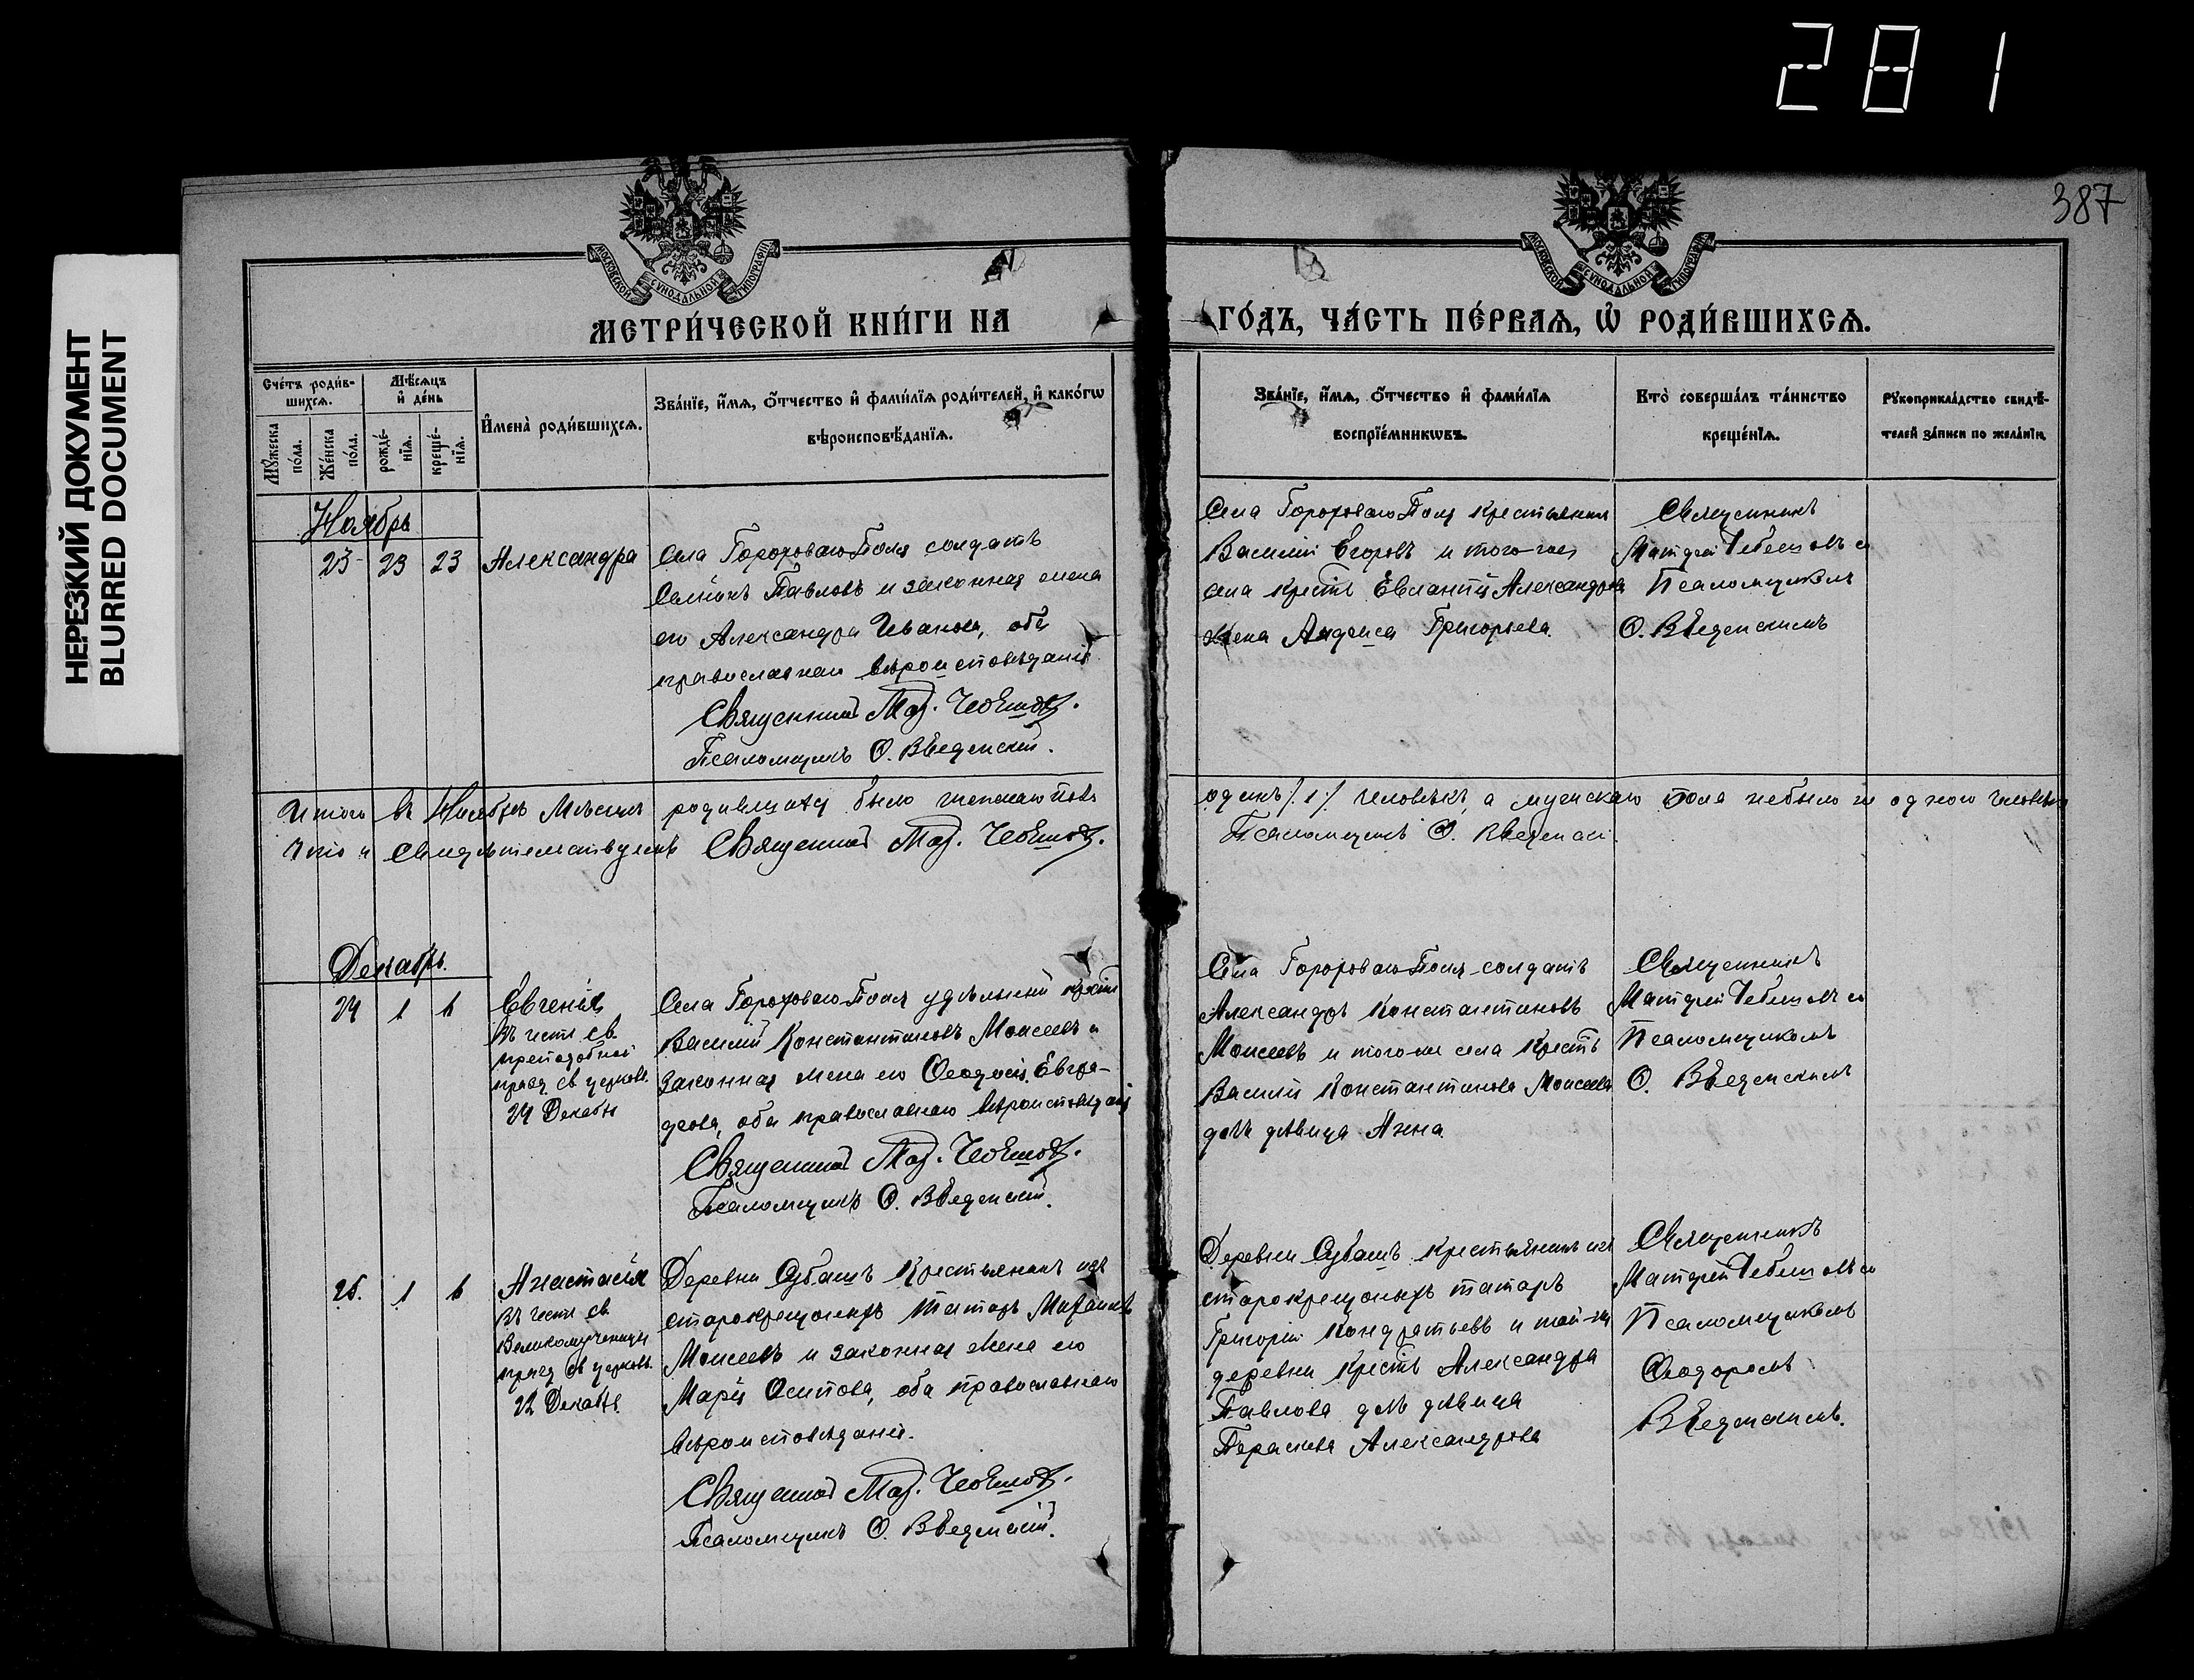 281
387
НЕРЕЗКИЙ ДОКУМЕНТ
BLURRED DOCUMENT
МОСКОВСКОЙ СѴНОДАЛЬНОЙ ТИПОГРАФІИ
МОСКОВСКОЙ СѴНОДАЛЬНОЙ ТИПОГРАФІИ
МЕТРИ́ЧЕСКОЙ КНИ́ГИ НА ГО́ДЪ, ЧА́СТЬ ПЕ́РВАѦ, Ѡ҆ РОДИ́ВШИХСѦ.
Сче́тъ роди́в-
шихсѧ.
Мѣ́сѧцъ
и҆ де́нь
Мꙋ́жеска
по́ла.
Же́нска
по́ла.
рожде́-
нїѧ.
креще́-
нїѧ.
И҆мена̀ роди́вшихсѧ.
Зва́нїе, и҆́мѧ, ѻ҆́тчество и҆ фами́лїѧ роди́телей, и҆ како́гѡ
вѣроисповѣ́данїѧ.
Зва́нїе, и҆́мѧ, ѻ҆́тчество и҆ фами́лїѧ
воспрїе́мникѡвъ.
Кто̀ соверша́лъ та́инство
креще́нїѧ.
Рꙋкоприкла́дство свидѣ́-
телей за́писи по жела́нїю.
Ноябрь
23 23 23 Александра
Села Гороховаго Поля солдатъ
Павловъ и законная жена
его Александра Иванова, оба
православнаго вѣроисповѣданія
Священникъ Мат. Чебышовъ.
Псаломщикъ Ѳ. Введенскій.
Села Гороховаго Поля крестьянинъ
Василій Егоровъ и того-же
села крест. Александрова
жена Григорьева.
Священникъ
Матѳей Чебышовъ съ
Псаломщикомъ
Ѳ. Введенскимъ
Итого въ Ноябрѣ Мѣсяцѣ родившихся было женскаго пола одинъ /1/ человѣкъ, а мужскаго пола небыло ни одного человѣка
Что и свидѣтельствуемъ Священникъ Мат. Чебышовъ. Псаломщикъ Ѳ. Введенскій.
Декабрь.
24 1 6 Евгенія
въ честь св.
преподобной
празд. св. церковію
24 Декабря
Села Гороховаго Поля удѣльный крест.
Василій Константиновъ Моисеевъ и
законная жена его Ѳеодосія
оба православнаго вѣроисповѣданія
Священникъ Мат. Чебышовъ.
Псаломщикъ Ѳ. Введенскій.
Села Гороховаго Поля солдатъ
Александръ Константиновъ
Моисеевъ и того-же села крест.
Василія Константинова Моисеева
дочь дѣвица Анна
Священникъ
Матѳей Чебышовъ съ
Псаломщикомъ
Ѳ. Введенскимъ
25. 1 6 Анастасія
въ честь св.
Великомученицы
празд. св. церковію
22 Декабря.
Деревни Субашъ Крестьянинъ изъ
старокрещеныхъ татаръ Михаилъ
Моисеевъ и законная жена его
Марія Осипова, оба православнаго
вѣроисповѣданія.
Священникъ Мат. Чебышовъ.
Псаломщикъ Ѳ. Введенскій.
Деревни Субашъ крестьянинъ изъ
старокрещеныхъ татаръ
Григорій Кондратьевъ и той-же
деревни крест. Александра
Павлова дочь дѣвица
Параскева Александрова
Священникъ
Матѳей Чебышовъ съ
Псаломщикомъ
Ѳеодоромъ
Введенскимъ.